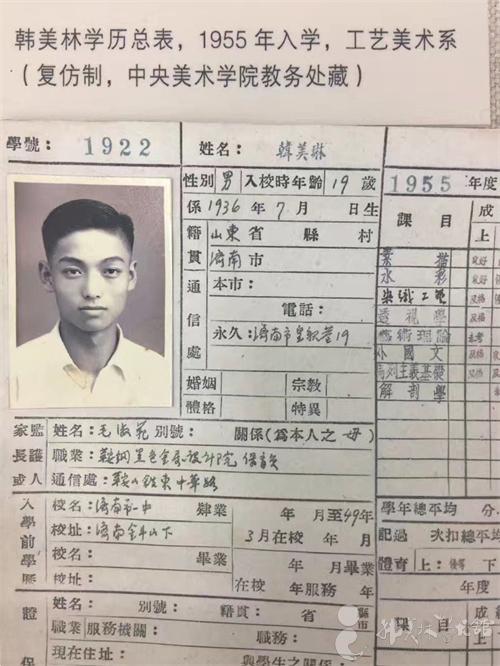 韩美林学历总表，1955年入学，工艺美术系
（复仿制，中央美术学院教务处藏）
學號： 1922 姓名： 韓美琳
性别 男 入校時年齡 19 歲 1955 年度
係 1936 年 7 月 日生 課目 成
籍貫 山東 省 縣 村
濟南 市 素描 良好
通信處 本市： 水彩 良好
電話： 染織工藝 及格
永久：濟南市皇親巷19 透視學 及格
藝術理論 未考
外國文 及格
婚姻 宗教 馬列主義基礎 及格
體格 特異 解剖學
家長或監護人 姓名：毛 别號： 關係（為本人之 母）
職業：鞍鋼黑色金屬設計院
通信處：鞍山鉄東中華路
入學前學歷 校名：濟南市一中 肄業 年 月至49年 學年總平均 分
校址：濟南 山下 3月在校 年 月 記過 次扣總平均
校名： 畢業 年 月畢業 體育 上：優等 下
校址： 在校 年服務 年 年度
證保 姓名： 别號： 籍貫： 省 縣市 課目 成績
職業 服務機關： 職務： 上
現在住址： 與學生之關係